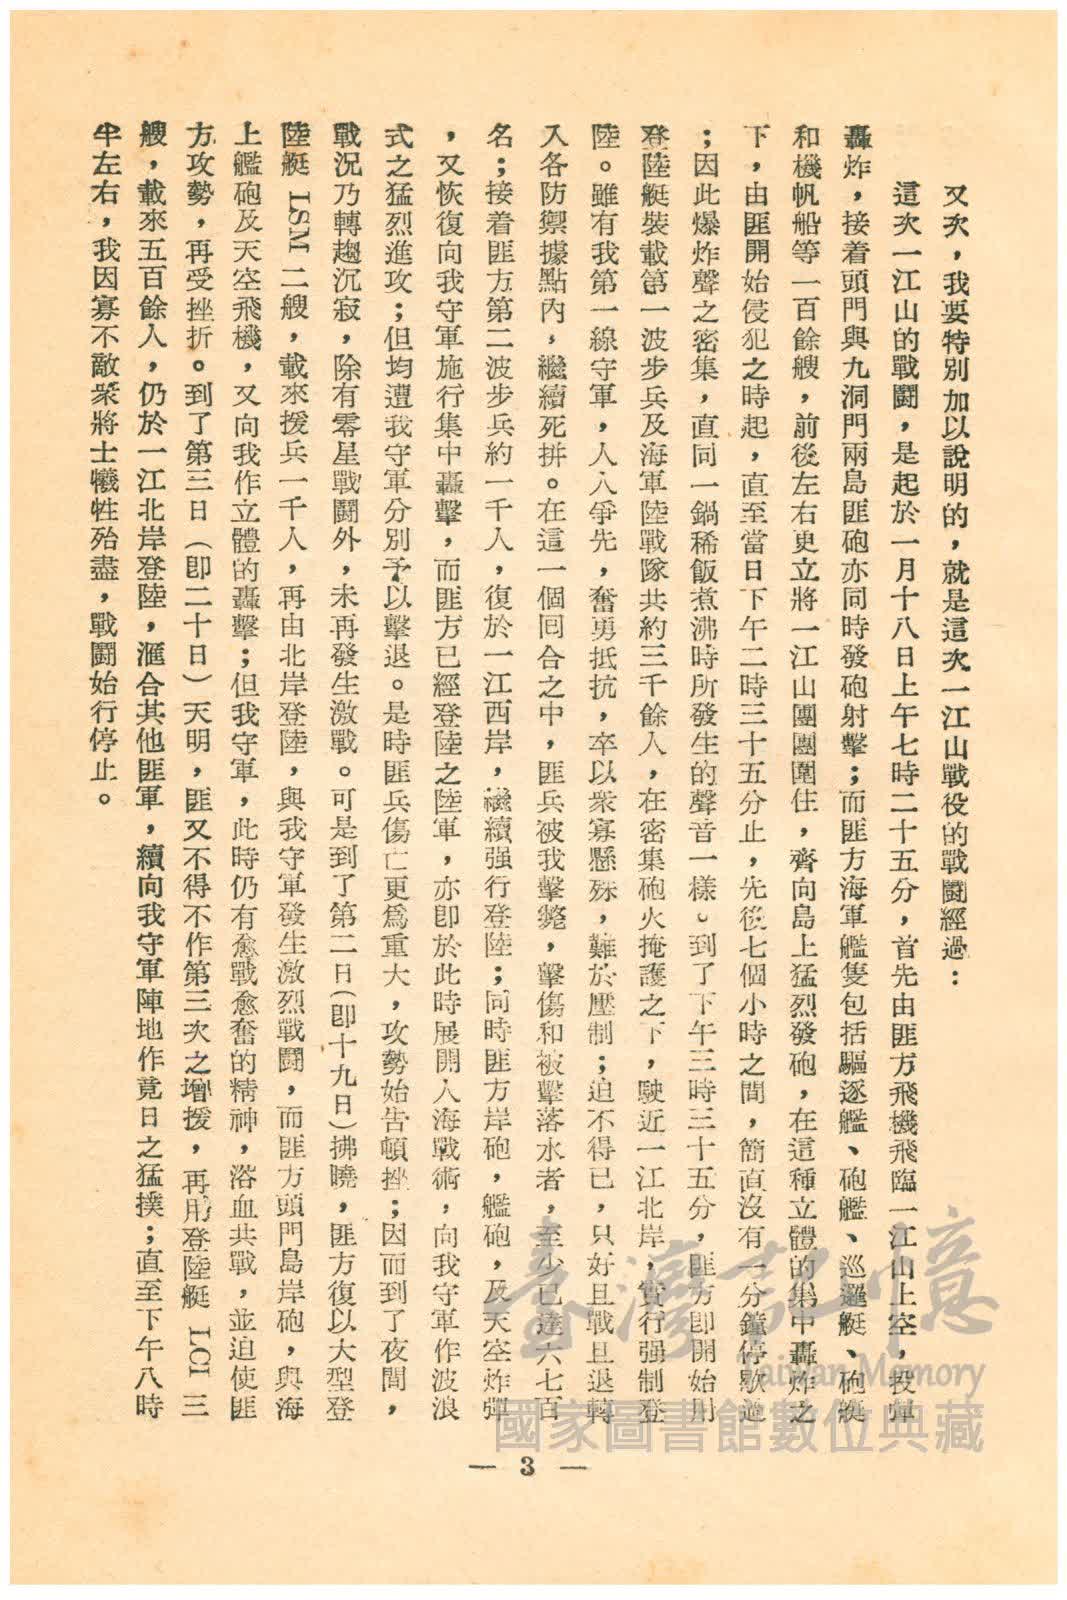 又次，我要特別加以說明的，就是這次一江山戰役的戰鬪經過：
這次一江山的戰鬪，是起於一月十八日上午七時二十五分，首先由匪方飛機飛臨一江山上空，投彈
轟炸，接着頭門與九洞門兩島匪砲亦同時發砲射擊；而匪方海軍艦隻包括驅逐艦、砲艦、巡邏艇、砲艇
和機帆船等一百餘艘，前後左右更立將一江山團團圍住，齊向島上猛烈發砲，在這種立體的集中轟炸之
下，由匪開始侵犯之時起，直至當日下午二時三十五分止，先後七個小時之間，簡直沒有一分鐘停歇過
；因此爆炸聲之密集，直同一鍋稀飯煮沸時所發生的聲音一樣。到了下午三時三十五分，匪方即開始用
登陸艇裝載第一波步兵及海軍陸戰隊共約三千餘人，在密集砲火掩護之下，駛近一江北岸，實行强制登
陸。雖有我第一線守軍，人人爭先，奮勇抵抗，卒以衆寡懸殊，難於壓制；迫不得已，只好且戰且退轉
入各防禦據點內，繼續死拼。在這一個回合之中，匪兵被我擊斃，擊傷和被擊落水者，至少已達六七百
名；接着匪方第二波步兵約一千人，復於一江西岸，繼續强行登陸；同時匪方岸砲，艦砲，及天空炸彈
，又恢復向我守軍施行集中轟擊，而匪方已經登陸之陸軍，亦即於此時展開人海戰術，向我守軍作波浪
式之猛烈進攻；但均遭我守軍分別予以擊退。是時匪兵傷亡更爲重大，攻勢始告頓挫；因而到了夜間，
戰況乃轉趨沉寂，除有零星戰鬪外，未再發生激戰。可是到了第二日（即十九日）拂曉，匪方復以大型登
陸艇 LSM 二艘，載來援兵一千人，再由北岸登陸，與我守軍發生激烈戰鬪，而匪方頭門島岸砲，與海
上艦砲及天空飛機，又向我作立體的轟擊；但我守軍，此時仍有愈戰愈奮的精神，浴血共戰，並迫使匪
方攻勢，再受挫折。到了第三日（即二十日）天明，匪又不得不作第三次之增援，再用登陸艇 LCI 三
艘，載來五百餘人，仍於一江北岸登陸，滙合其他匪軍，續向我守軍陣地作竟日之猛撲；直至下午八時
半左右，我因寡不敵衆將士犧牲殆盡，戰鬪始行停止。
— 3 —
臺灣記憶
Taiwan Memory
國家圖書館數位典藏